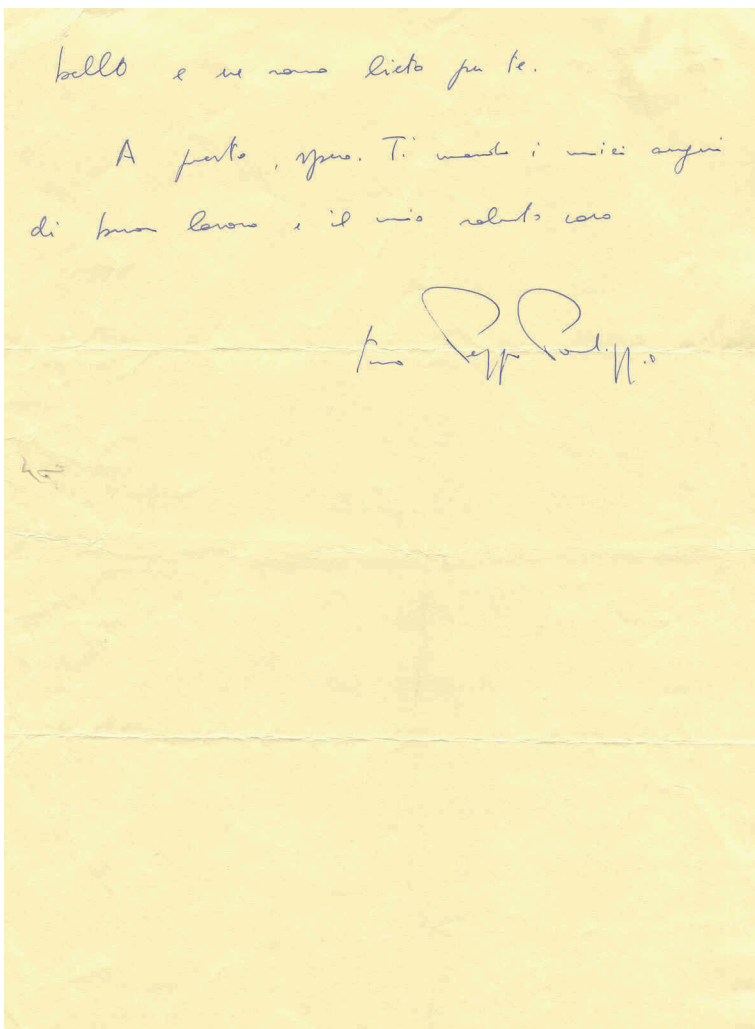 bello e ne sono lieto per te.
A presto, spero. Ti mando i miei auguri
di buon lavoro e il mio saluto caro
tuo Peppo Pontiggia